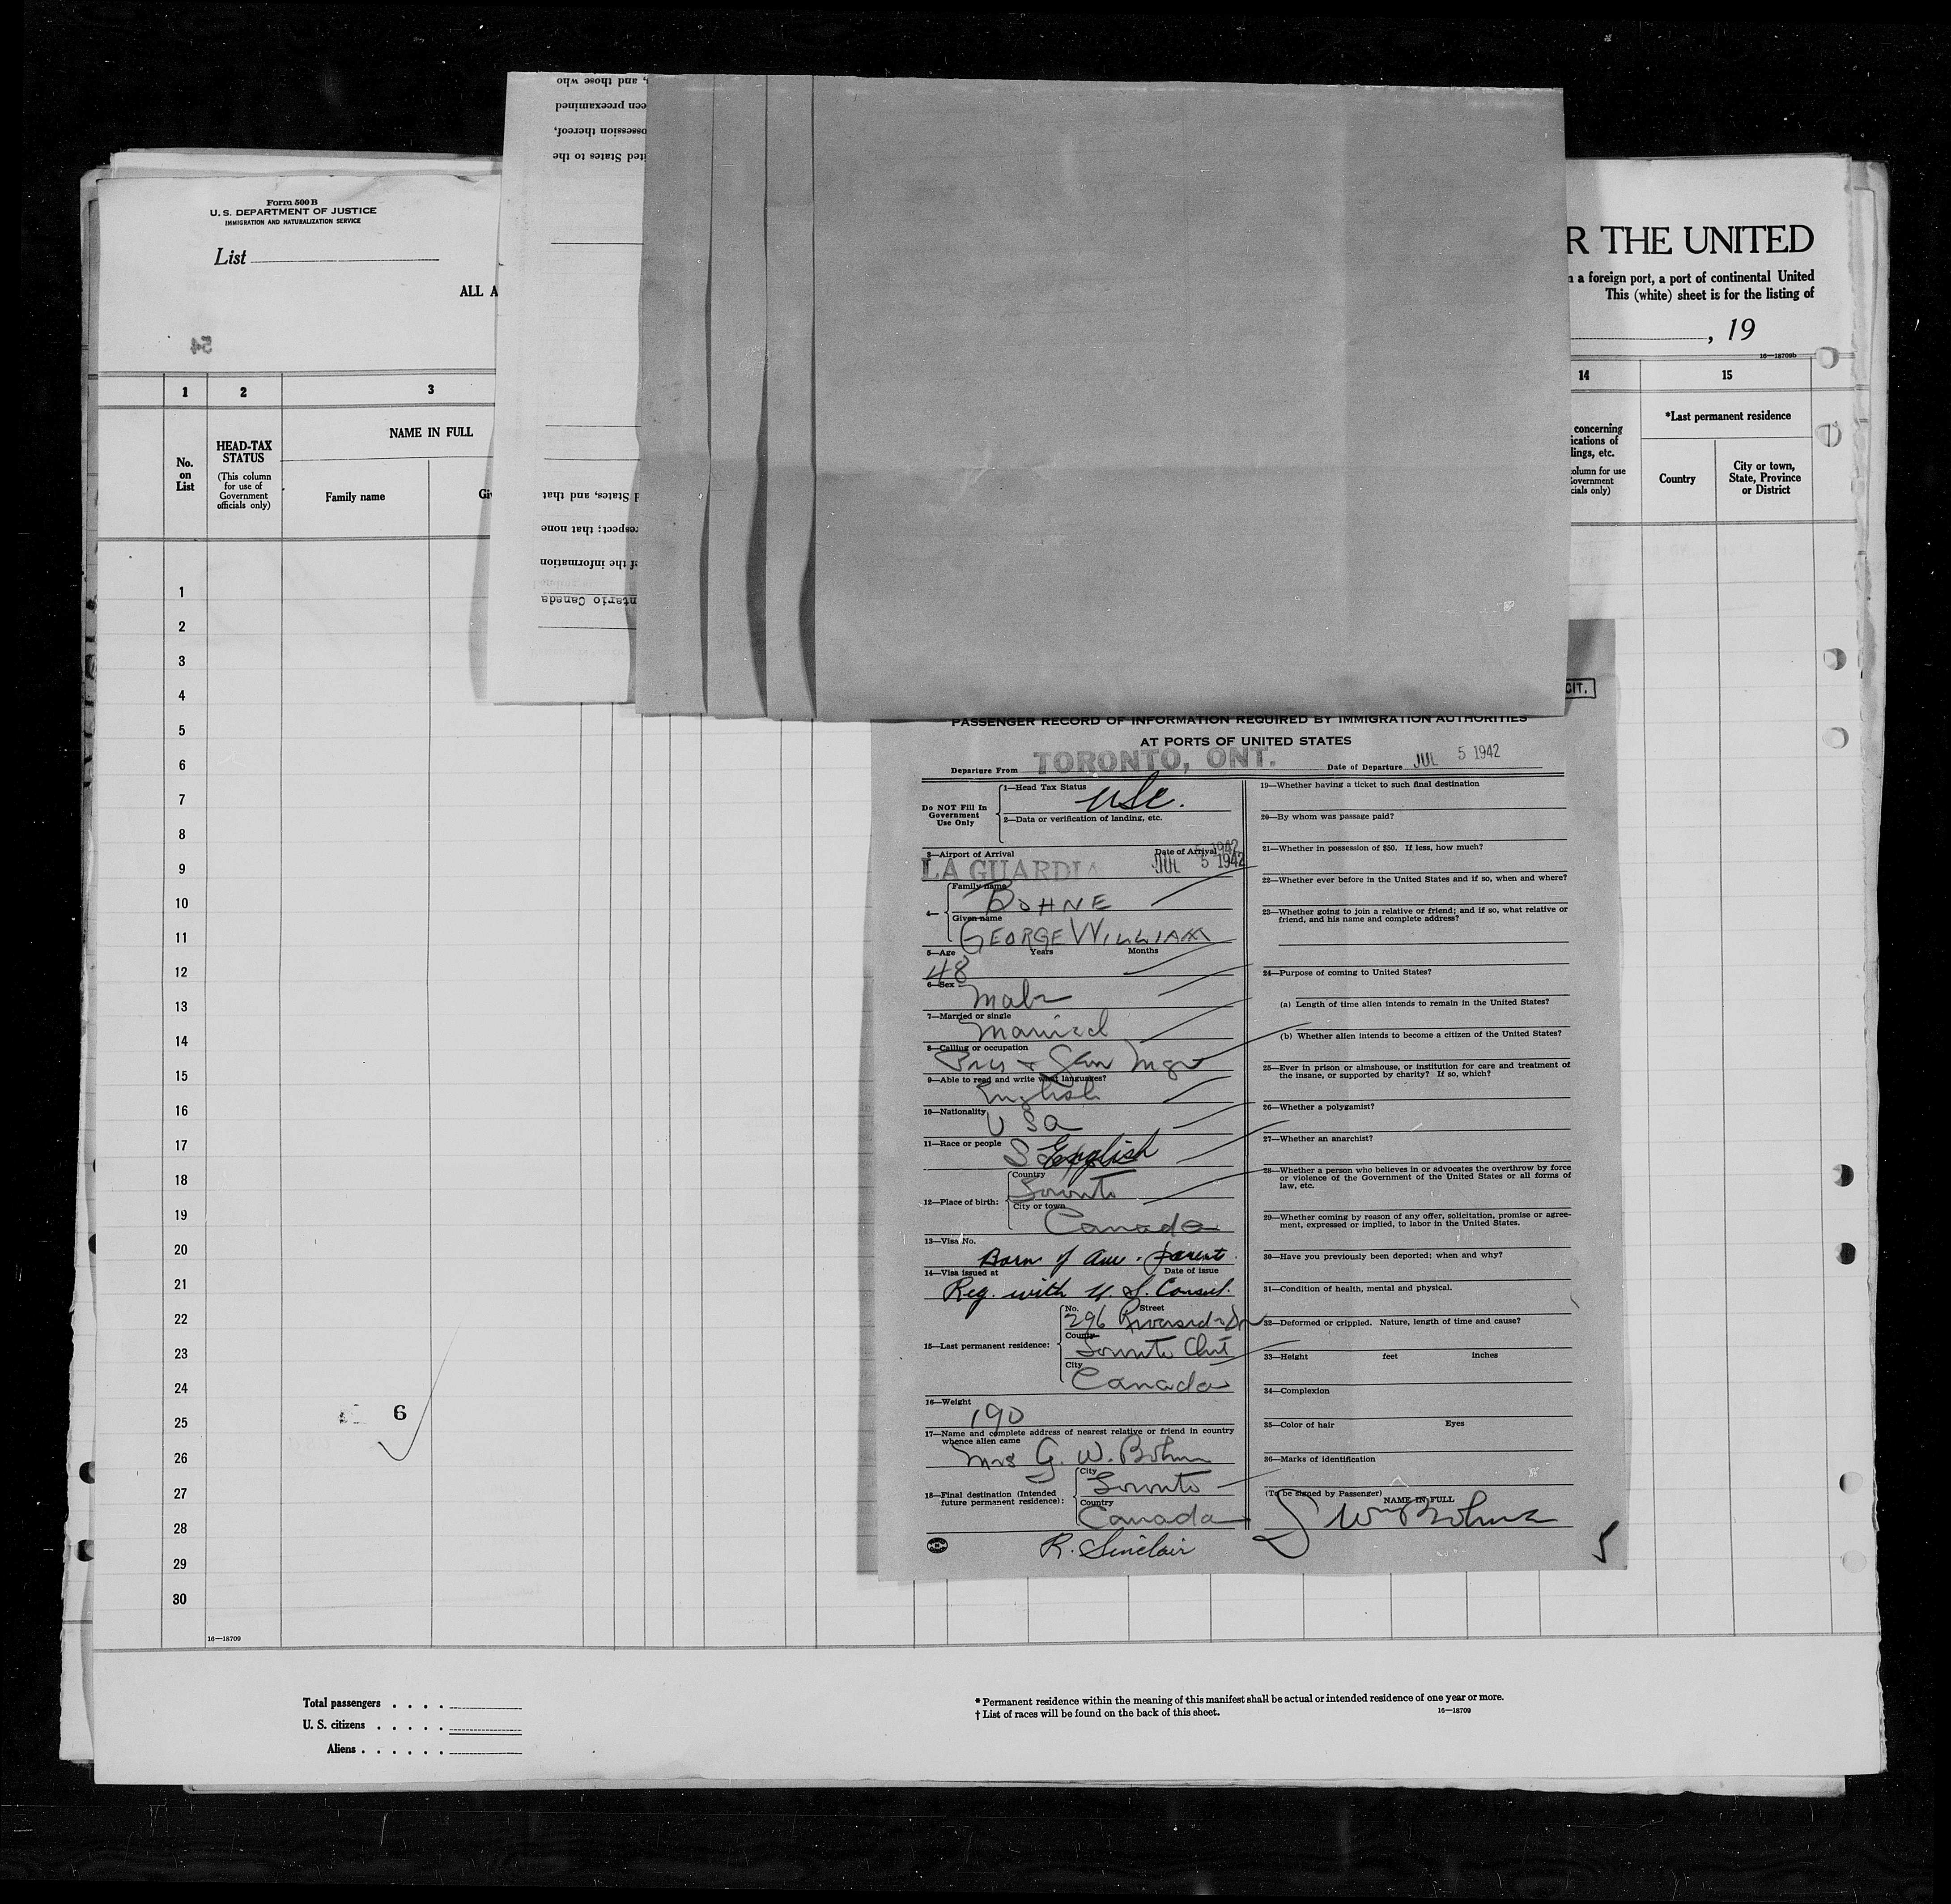 Form 500 B
U. S. DEPARTMENT OF JUSTICE
IMMIGRATION AND NATURALIZATION SERVICE
List
ALL A
54
, and those who
een preexamined
ossession thereof,
ited States to the
d States, and that
respect; that none
f the information
ntario Canada
R THE UNITED
n a foreign port, a port of continental United
This (white) sheet is for the listing of
, 19
16—18709b
1 2 3 14 15
No. on List
HEAD-TAX STATUS
(This column for use of Government officials only)
NAME IN FULL
Family name
Gi
concerning
ications of
lings, etc.
column for use
Government
cials only)
*Last permanent residence
Country
City or town, State, Province or District
1
2
3
4
5
6
7
8
9
10
11
12
13
14
15
16
17
18
19
20
21
22
23
24
25
26
27
28
29
30
6
16—18709
Total passengers . . . .
U. S. citizens . . . . .
Aliens . . . . . .
* Permanent residence within the meaning of this manifest shall be actual or intended residence of one year or more.
† List of races will be found on the back of this sheet.
16—18709
CIT.
PASSENGER RECORD OF INFORMATION REQUIRED BY IMMIGRATION AUTHORITIES
AT PORTS OF UNITED STATES
Departure From TORONTO, ONT. Date of Departure JUL 5 1942
Do NOT Fill In Government Use Only
1—Head Tax Status USC.
2—Data or verification of landing, etc.
3—Airport of Arrival LA GUARDIA Date of Arrival JUL 5 1942
4— Family name BOHNE
Given name GEORGE WILLIAM
5—Age Years Months
48
6—Sex Male
7—Married or single Married
8—Calling or occupation
Pres + Gen Mgr
9—Able to read and write what languages?
English
10—Nationality USA
11—Race or people English
12—Place of birth: Country Toronto
City or town Canada
13—Visa No.
Born of Am. parents
14—Visa issued at Date of issue
Reg. with U. S. Consul.
15—Last permanent residence: No. Street 296 Riverside Dr
County Toronto Ont
City Canada
16—Weight 190
17—Name and complete address of nearest relative or friend in country
whence alien came
Mrs G. W. Bohne
18—Final destination (Intended future permanent residence): City Toronto
Country Canada
R. Sinclair
19—Whether having a ticket to such final destination
20—By whom was passage paid?
21—Whether in possession of $50. If less, how much?
22—Whether ever before in the United States and if so, when and where?
23—Whether going to join a relative or friend; and if so, what relative or
friend, and his name and complete address?
24—Purpose of coming to United States?
(a) Length of time alien intends to remain in the United States?
(b) Whether alien intends to become a citizen of the United States?
25—Ever in prison or almshouse, or institution for care and treatment of
the insane, or supported by charity? If so, which?
26—Whether a polygamist?
27—Whether an anarchist?
28—Whether a person who believes in or advocates the overthrow by force
or violence of the Government of the United States or all forms of
law, etc.
29—Whether coming by reason of any offer, solicitation, promise or agree-
ment, expressed or implied, to labor in the United States.
30—Have you previously been deported; when and why?
31—Condition of health, mental and physical.
32—Deformed or crippled. Nature, length of time and cause?
33—Height feet inches
34—Complexion
35—Color of hair Eyes
36—Marks of identification
(To be signed by Passenger) NAME IN FULL
G Wm Bohne
5